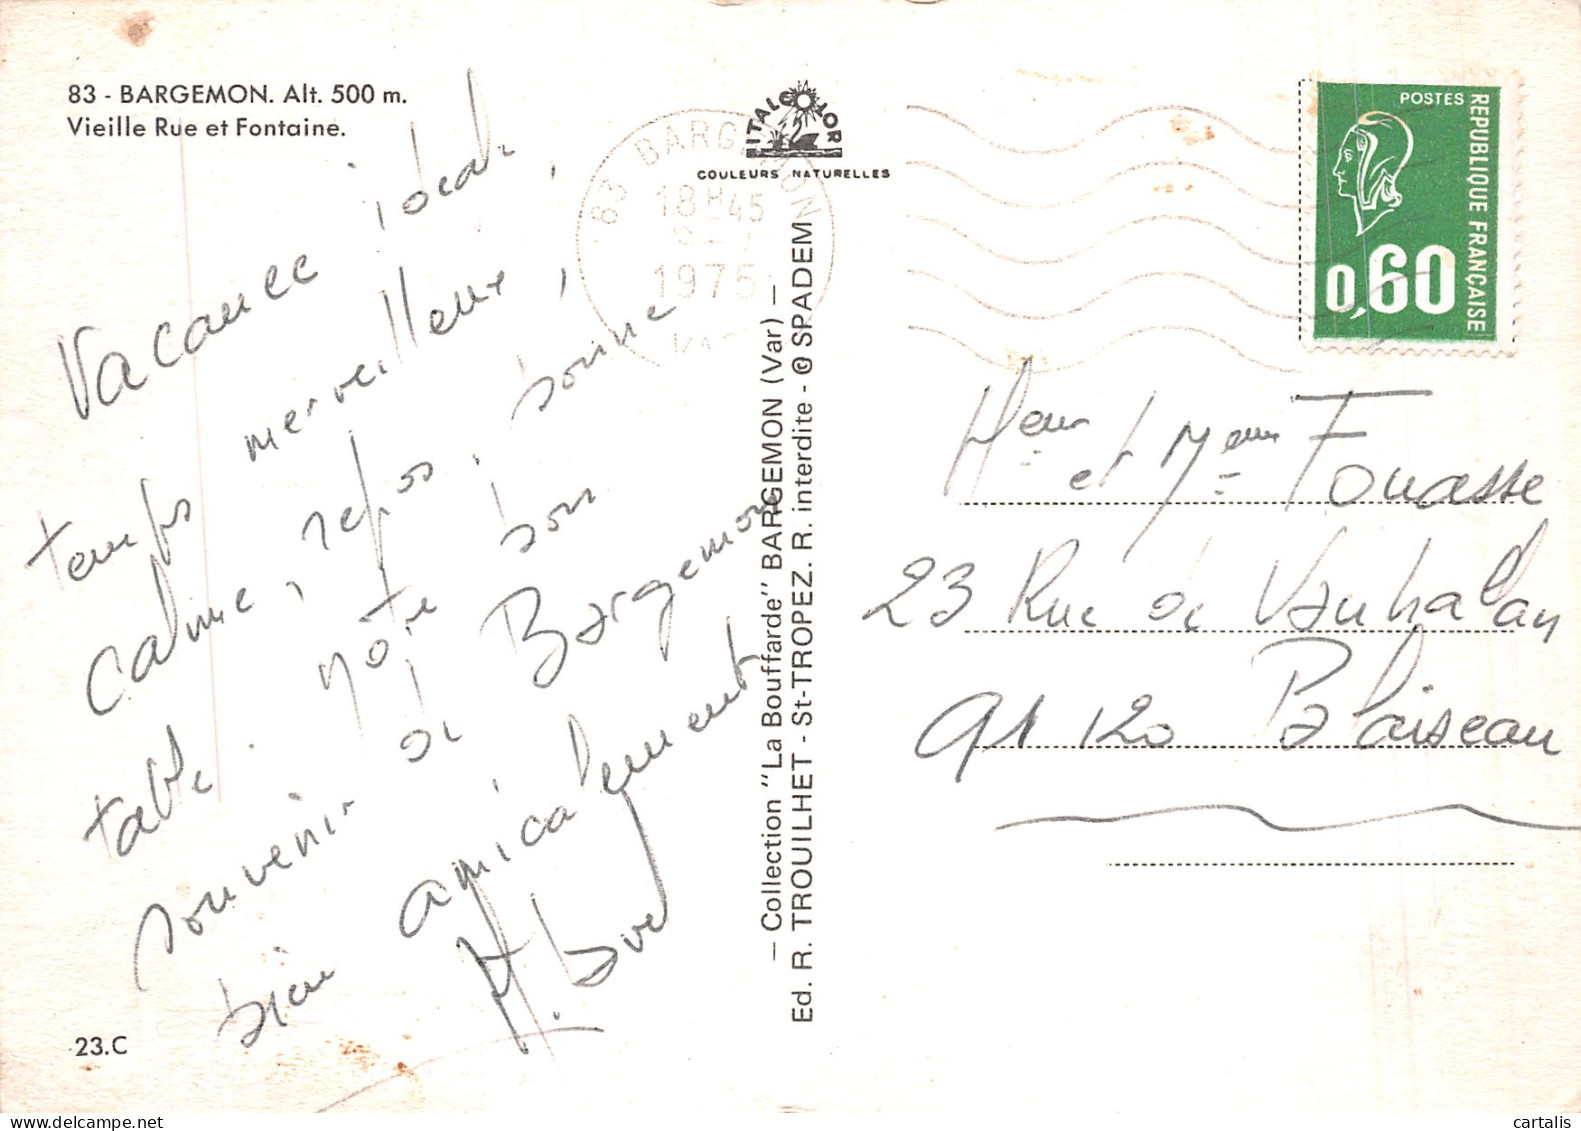 83 - BARGEMON. Alt. 500 m.
Vieille Rue et Fontaine.
Vacance idéal,
temps merveilleux,
calme, repos, bonne
table. notre bon
souvenir de Bargemon
bien amicalement
23.C
ITALCOLOR
COULEURS NATURELLES
83 BARGEMON
18 H 45
1975
VAR
— Collection "La Bouffarde" BARGEMON (Var) —
Ed. R. TROUILHET - St-TROPEZ. R. interdite - © SPADEM
POSTES
REPUBLIQUE FRANÇAISE
0,60
Meur et Meme Fouasse
23 Rue de Vauhalan
91120 Palaiseau
cartalis